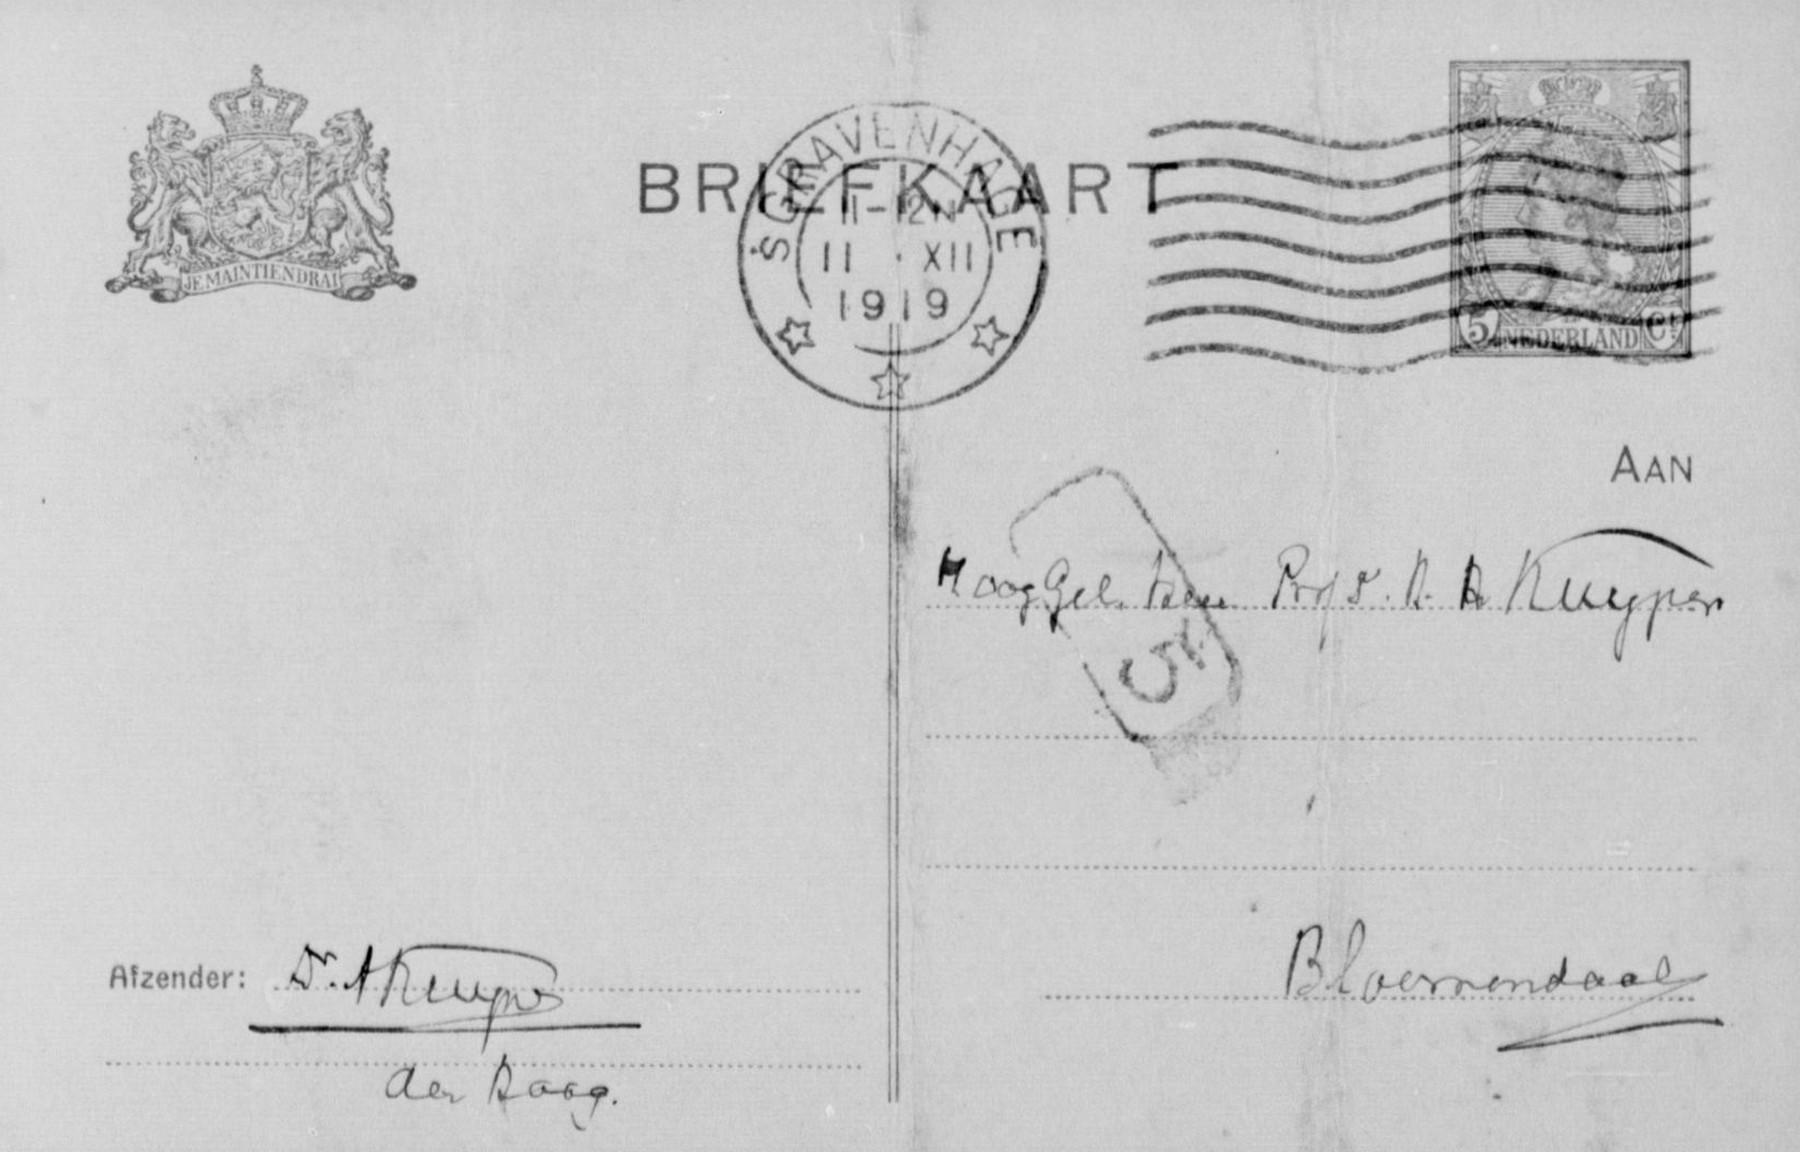 BRIEFKAART
JE MAINTIENDRAI
'SGRAVENHAGE
11-12N
11 · XII
1919
5 NEDERLAND Ct
AAN
HoogGel. Heer Prof Dr. H. H Kuyper
5
Bloemendaal
Afzender: Dr. A Kuyper
den Haag.